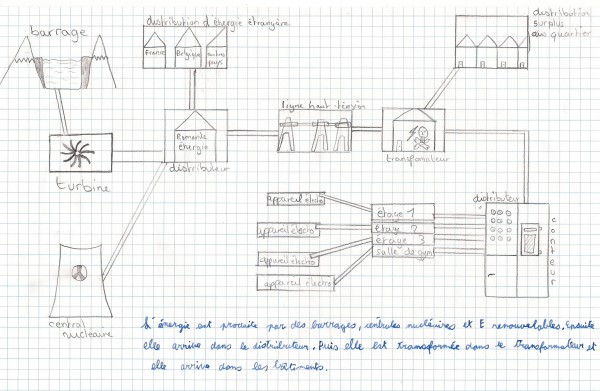 barrage
distribution d'énergie étrangère
France
Belgique
autres
pays
distribution
surplus
au quartier
ligne haut tension
Romande
énergie
distributeur
turbine
transfomateur
distributeur
conteur
appareil électro
étage 1
appareil électro
étage 2
appareil électro
etage 3
appareil électro
salle de gym
central
nucléaire
L'énergie est produite par des barrages, centrales nucléaires et E renouvelables. Ensuite
elle arrive dans le distributeur. Puis elle est transformée dans le transformateur et
elle arrive dans les bâtiments.